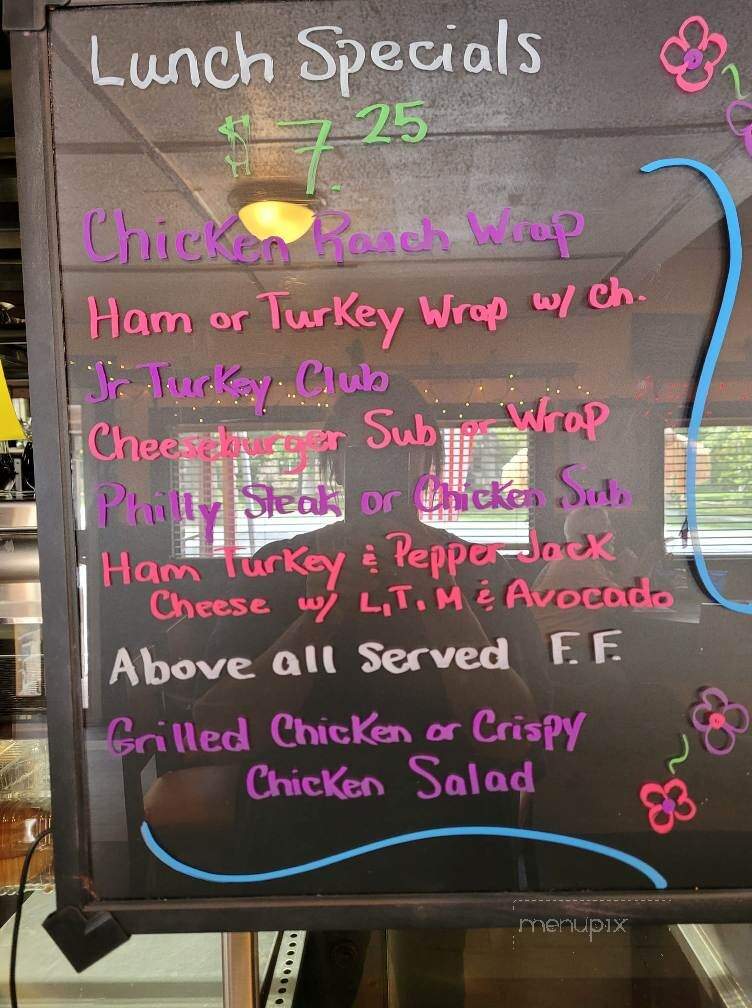 Lunch Specials
$ 7.25
Chicken Ranch Wrap
Ham or Turkey Wrap w/ ch.
Jr Turkey Club
Cheeseburger Sub or Wrap
Philly Steak or Chicken Sub
Ham Turkey & Pepper Jack
Cheese w/ L,T,M & Avocado
Above all served F.F.
Grilled Chicken or Crispy
Chicken Salad
menupix